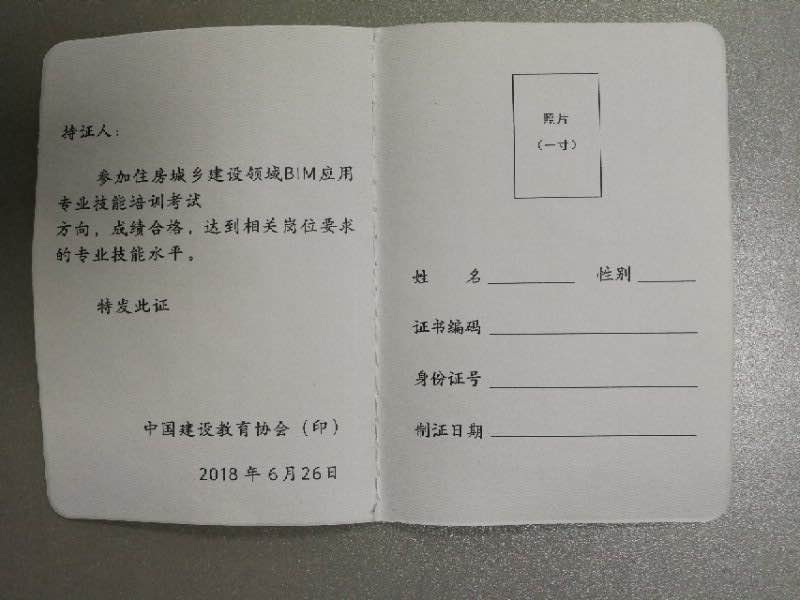 持证人：
参加住房城乡建设领域BIM应用
专业技能培训考试
方向，成绩合格，达到相关岗位要求
的专业技能水平。
特发此证
中国建设教育协会（印）
2018年6月26日
照片
（一寸）
姓 名 性别
证书编码
身份证号
制证日期